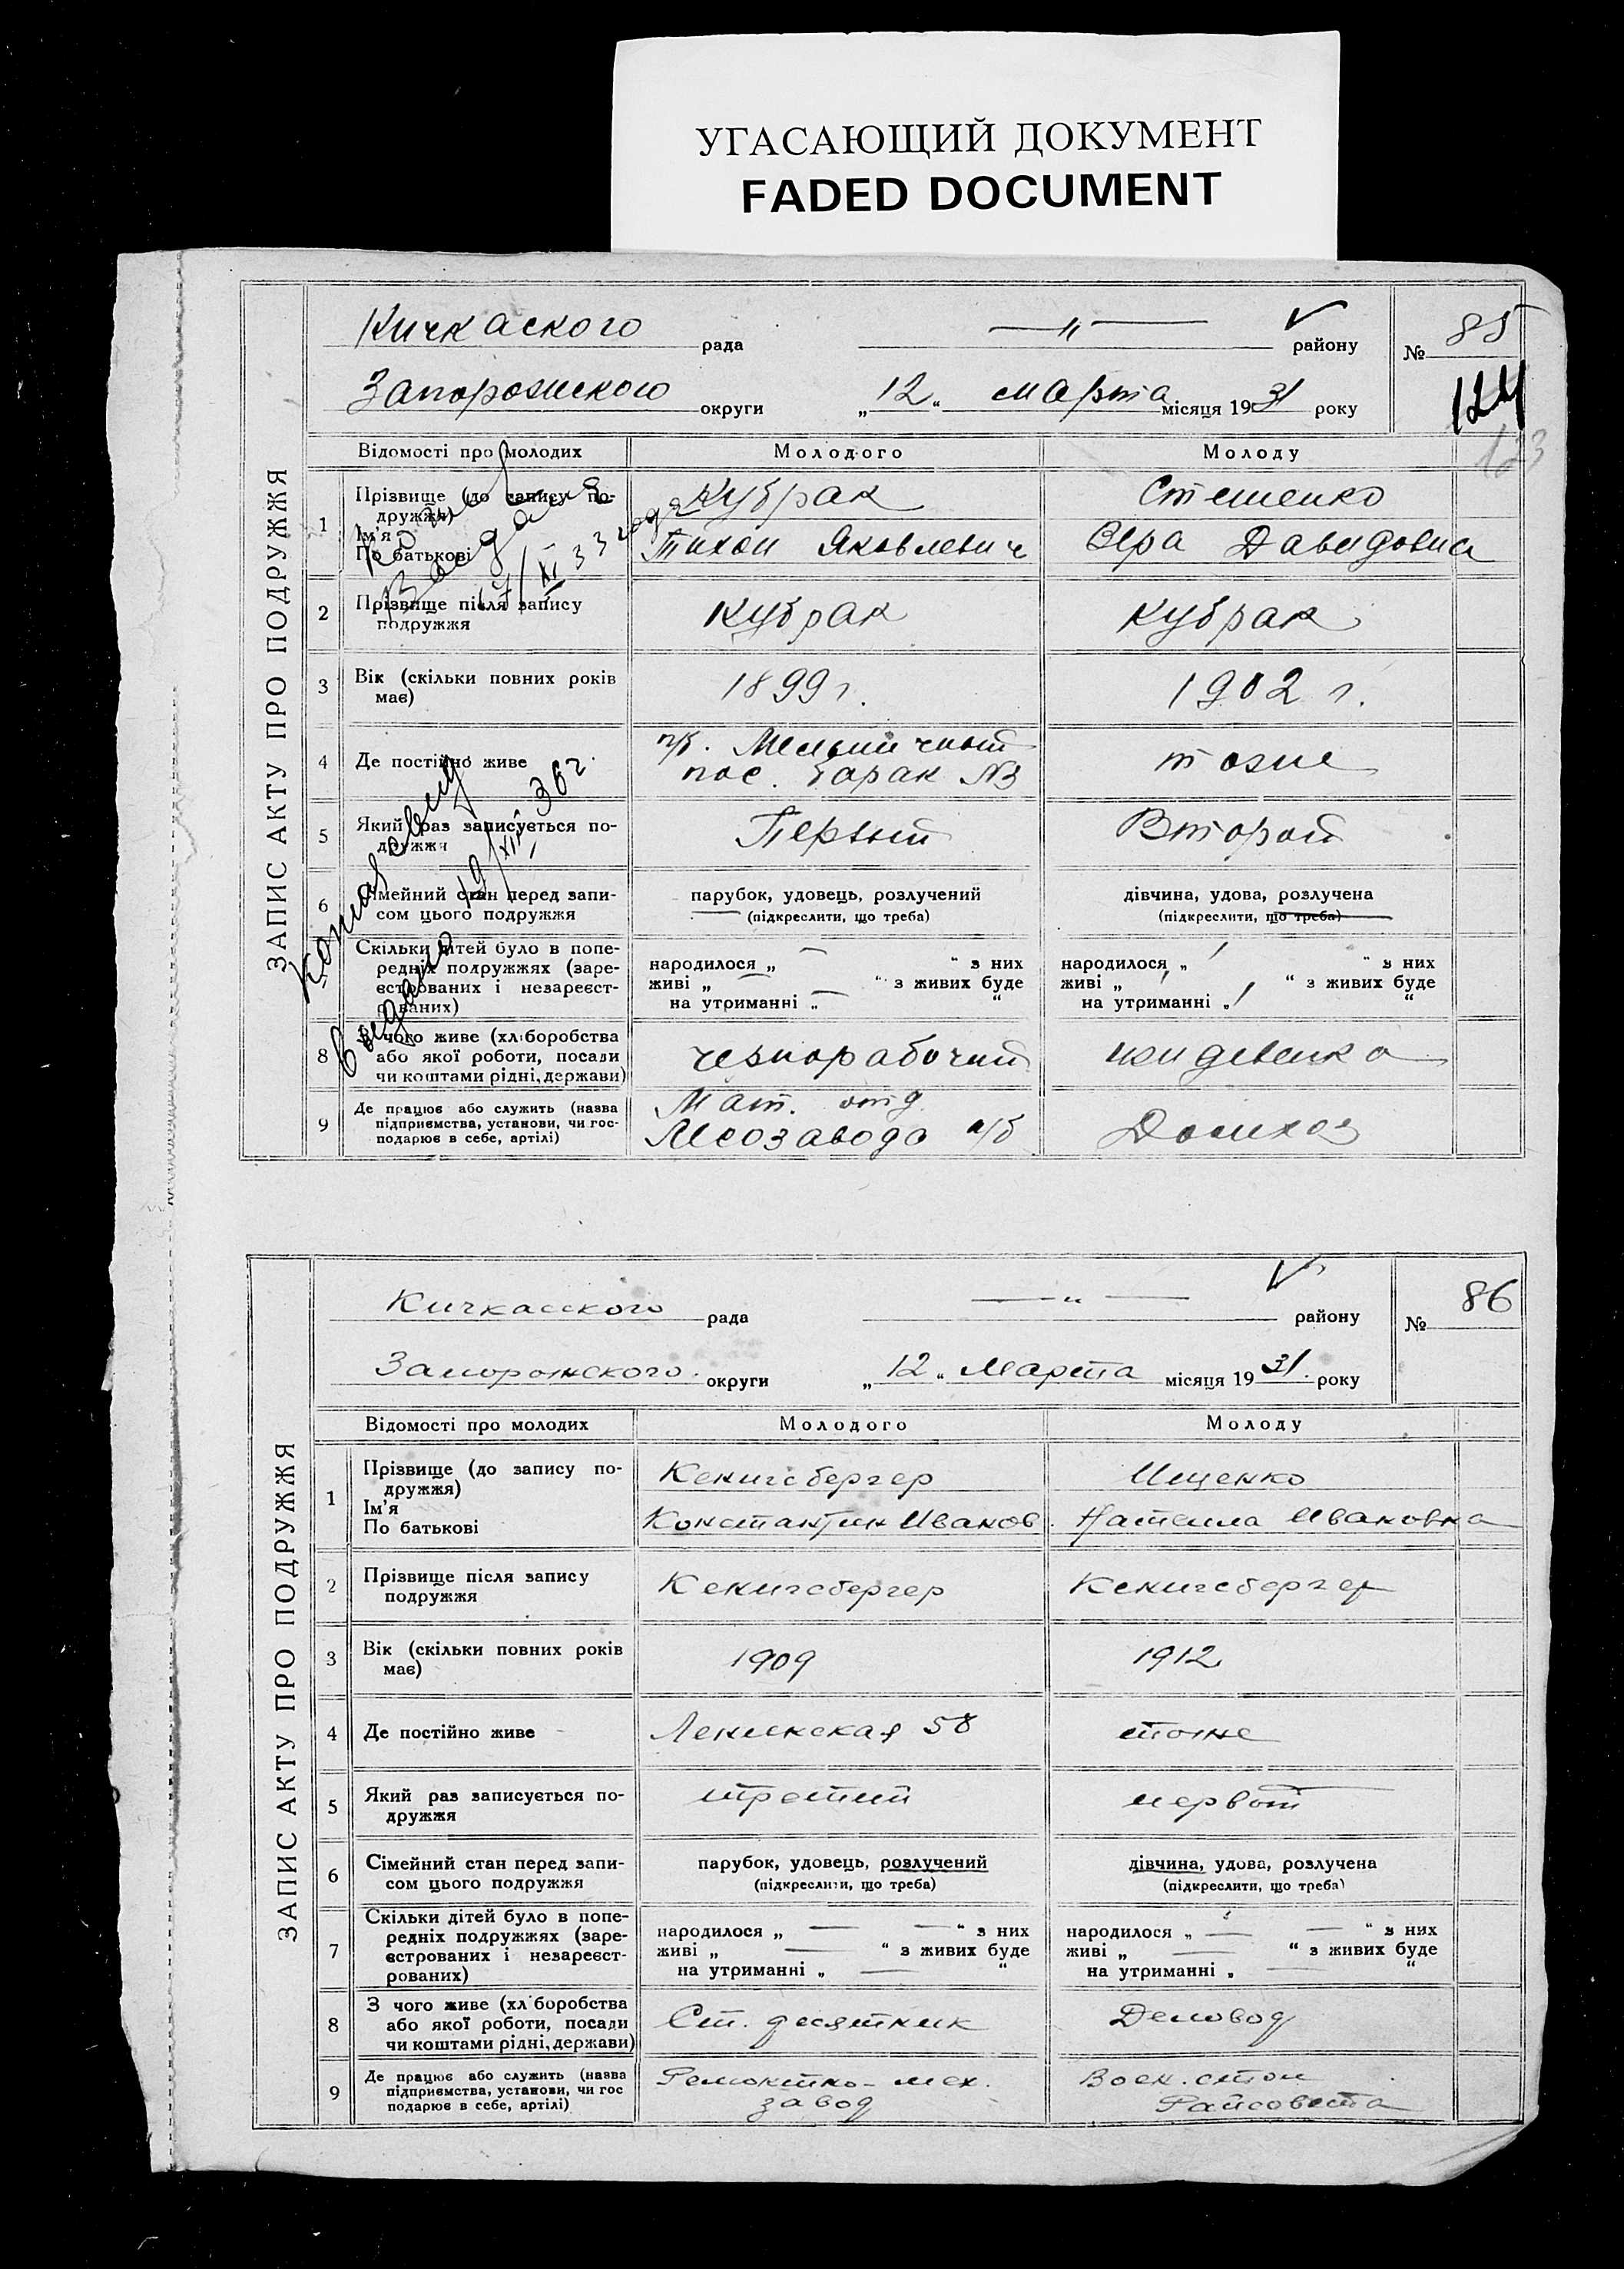 УГАСАЮЩИЙ ДОКУМЕНТ
FADED DOCUMENT
ЗАПИС АКТУ ПРО ПОДРУЖЖЯ
Кичкаского рада —„— району № 85
Запорожского округи „12“ марта місяця 1931 року
124
123
Відомості про молодих Молодого Молоду
1 Прізвище (до запису по-
дружжя)
Ім'я
По батькові
Кубрак Стешенко
Тихон Яковлевич Вера Давидовна
Копия
Выдана
17/XI 33 года
2 Прізвище після запису
подружжя
Кубрак Кубрак
3 Вік (скільки повних років
має)
1899 г. 1902 г.
4 Де постійно живе
п/б. Мельничный
пос. барак №3
тоже
5 Який раз записується по-
дружжя
Первый Второй
6 Сімейний стан перед запи-
сом цього подружжя
парубок, удовець, розлучений
(підкреслити, що треба)
дівчина, удова, розлучена
(підкреслити, що треба)
Скільки дітей було в попе-
редніх подружжях (заре-
єстрованих і незареєст-
рованих)
народилося „ — “ з них
живі „ — “ з живих буде
на утриманні „ — “
народилося „ 1 “ з них
живі „ 1 “ з живих буде
на утриманні „ 1 “
Копия
выдана 19/XII 36 г.
8 З чого живе (хліборобства
або якої роботи, посади
чи коштами рідні, держави)
чернорабочий иждевенка
9 Де працює або служить (назва
підприємства, установи, чи гос-
подарює в себе, артілі)
Мат. отд.
Лесозавода п/б
Домхоз
ЗАПИС АКТУ ПРО ПОДРУЖЖЯ
Кичкасского рада —„— району № 86
Запорожского. округи „12“ Марта місяця 1931. року
Відомості про молодих Молодого Молоду
1 Прізвище (до запису по-
дружжя)
Ім'я
По батькові
Кенигсбергер Ищенко
Константин Иванов. Наталла Ивановна
2 Прізвище після запису
подружжя
Кенигсбергер Кенигсбергер
3 Вік (скільки повних років
має)
1909 1912
4 Де постійно живе
Ленинская 58 тоже
5 Який раз записується по-
дружжя
третий первый
6 Сімейний стан перед запи-
сом цього подружжя
парубок, удовець, розлучений
(підкреслити, що треба)
дівчина, удова, розлучена
(підкреслити, що треба)
7 Скільки дітей було в попе-
редніх подружжях (заре-
єстрованих і незареєст-
рованих)
народилося „ — — “ з них
живі „ — “ з живих буде
на утриманні „ — “
народилося „ — — “ з них
живі „ — “ з живих буде
на утриманні „ — “
8 З чого живе (хліборобства
або якої роботи, посади
чи коштами рідні, держави)
Ст. десятник Деловод
9 Де працює або служить (назва
підприємства, установи, чи гос
подарює в себе, артілі)
Ремонтно-мех.
завод
Воен. стол
Райсовета